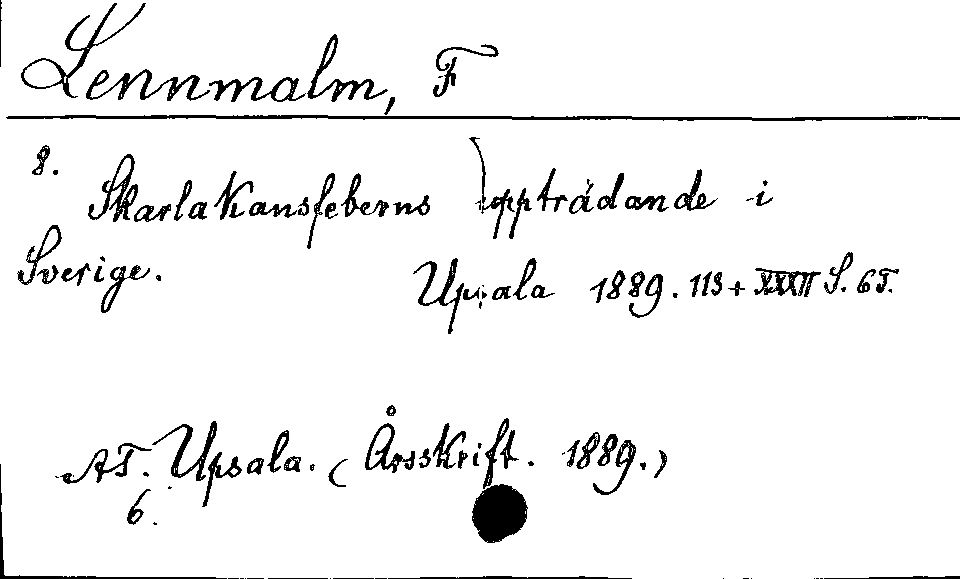 Lennmalm, F
8.
Skarlakansfeberns uppträdande i
Sverige.
Upsala 1889. 113 + XXXII S. 6 T.
AT. Upsala. (Årsskrift. 1889.)
6.